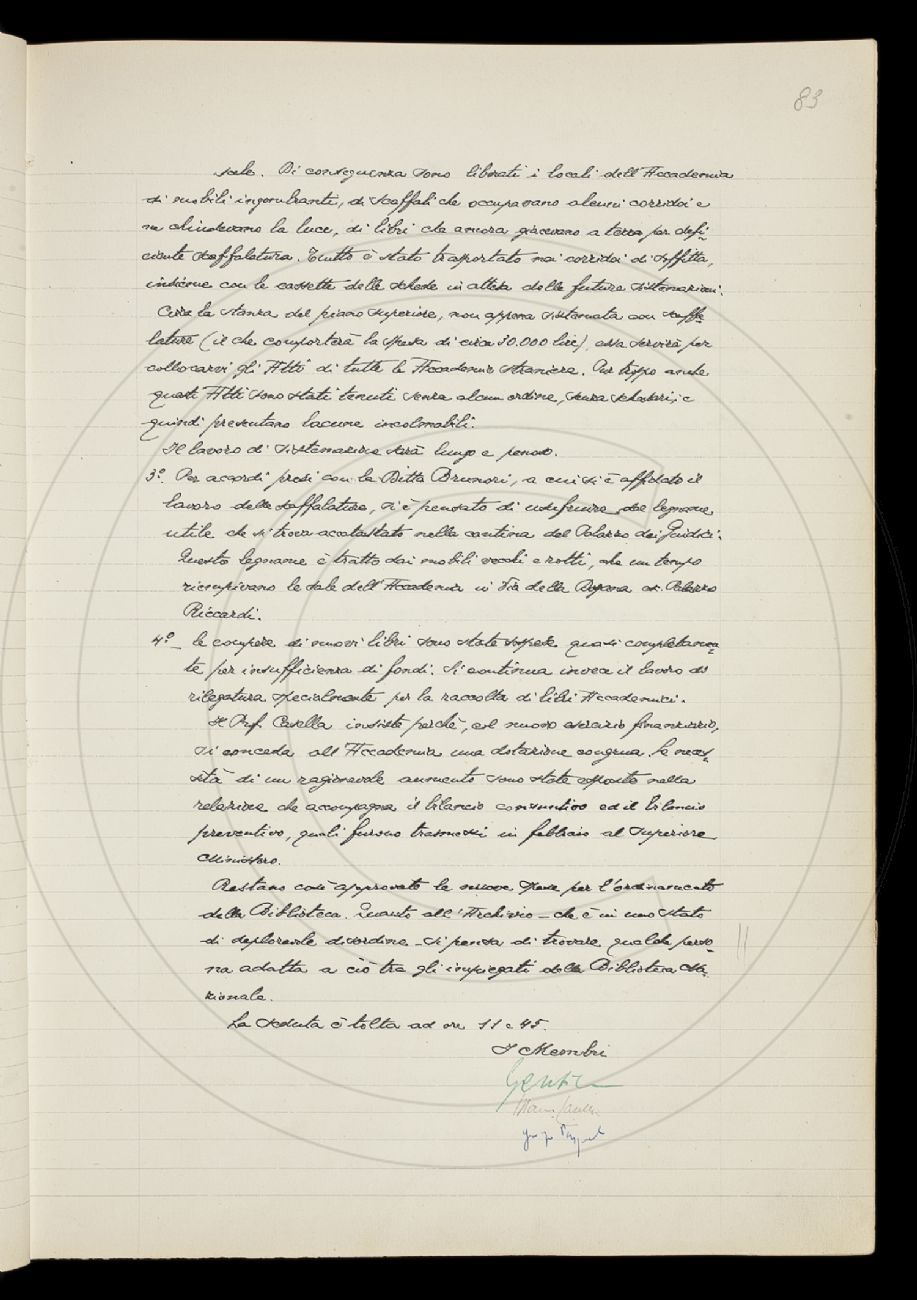 83
sale. Di conseguenza sono liberati i locali dell'Accademia
di mobili ingombranti, di scaffali che occupavano alcuni corridoi e
ne chiudevano la luce, di libri che ancora giacevano a terra per defi-
ciente scaffalatura. Tutto è stato trasportato nei corridoi di soffitta,
insieme con le cassette delle schede in attesa delle future sistemazioni.
Circa la stanza del piano superiore, non appena sistemata con scaffa-
lature (il che comporterà la spesa di circa 30.000 lire), essa servirà per
collocarvi gli Atti di tutte le Accademie straniere. Pur troppo anche
questi Atti sono stati tenuti senza alcun ordine, senza schedari, e
quindi presentano lacune incolmabili.
Il lavoro di sistemazione sarà lungo e penoso.
3°. Per accordi presi con la Ditta Brunori, a cui si è affidato il
lavoro delle scaffalature, si è pensato di usufruire del legname
utile che si trova accatastato nella cantina del Palazzo dei Giudici.
Questo legname è tratto dai mobili vecchi e rotti, che un tempo
riempivano le sale dell'Accademia in Via della Dogana e Palazzo
Riccardi.
4°_ le compere di nuovi libri sono state sospese quasi completamen-
te per insufficienza di fondi. Si continua invece il lavoro di
rilegatura specialmente per la raccolta di libri Accademici.
Il Prof. Casella insiste perchè, col nuovo esercizio finanziario,
si conceda all'Accademia una dotazione congrua. Le neces-
sità di un ragionevole aumento sono state esposte nella
relazione che accompagna il bilancio consuntivo ed il bilancio
preventivo, quali furono trasmessi in febbraio al Superiore
Ministero.
Restano così approvate le nuove spese per l'ordinamento
della Biblioteca. Quanto all'Archivio – che è in uno stato
di deplorevole disordine – si pensa di trovare qualche perso-
na adatta a ciò tra gli impiegati della Biblioteca Na-
zionale.
La seduta è tolta ad ore 11 e 45.
I Membri